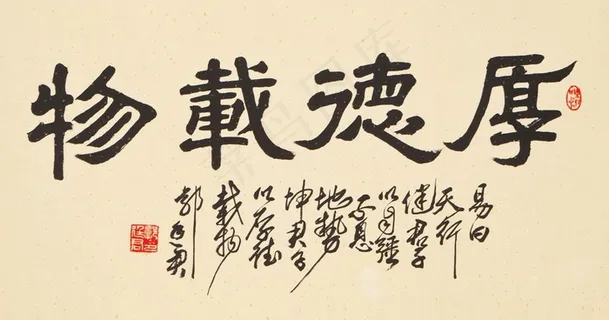 厚德載物
易曰
天行
健君子
以自強
不息
地勢
坤君子
以厚德
載物
郭